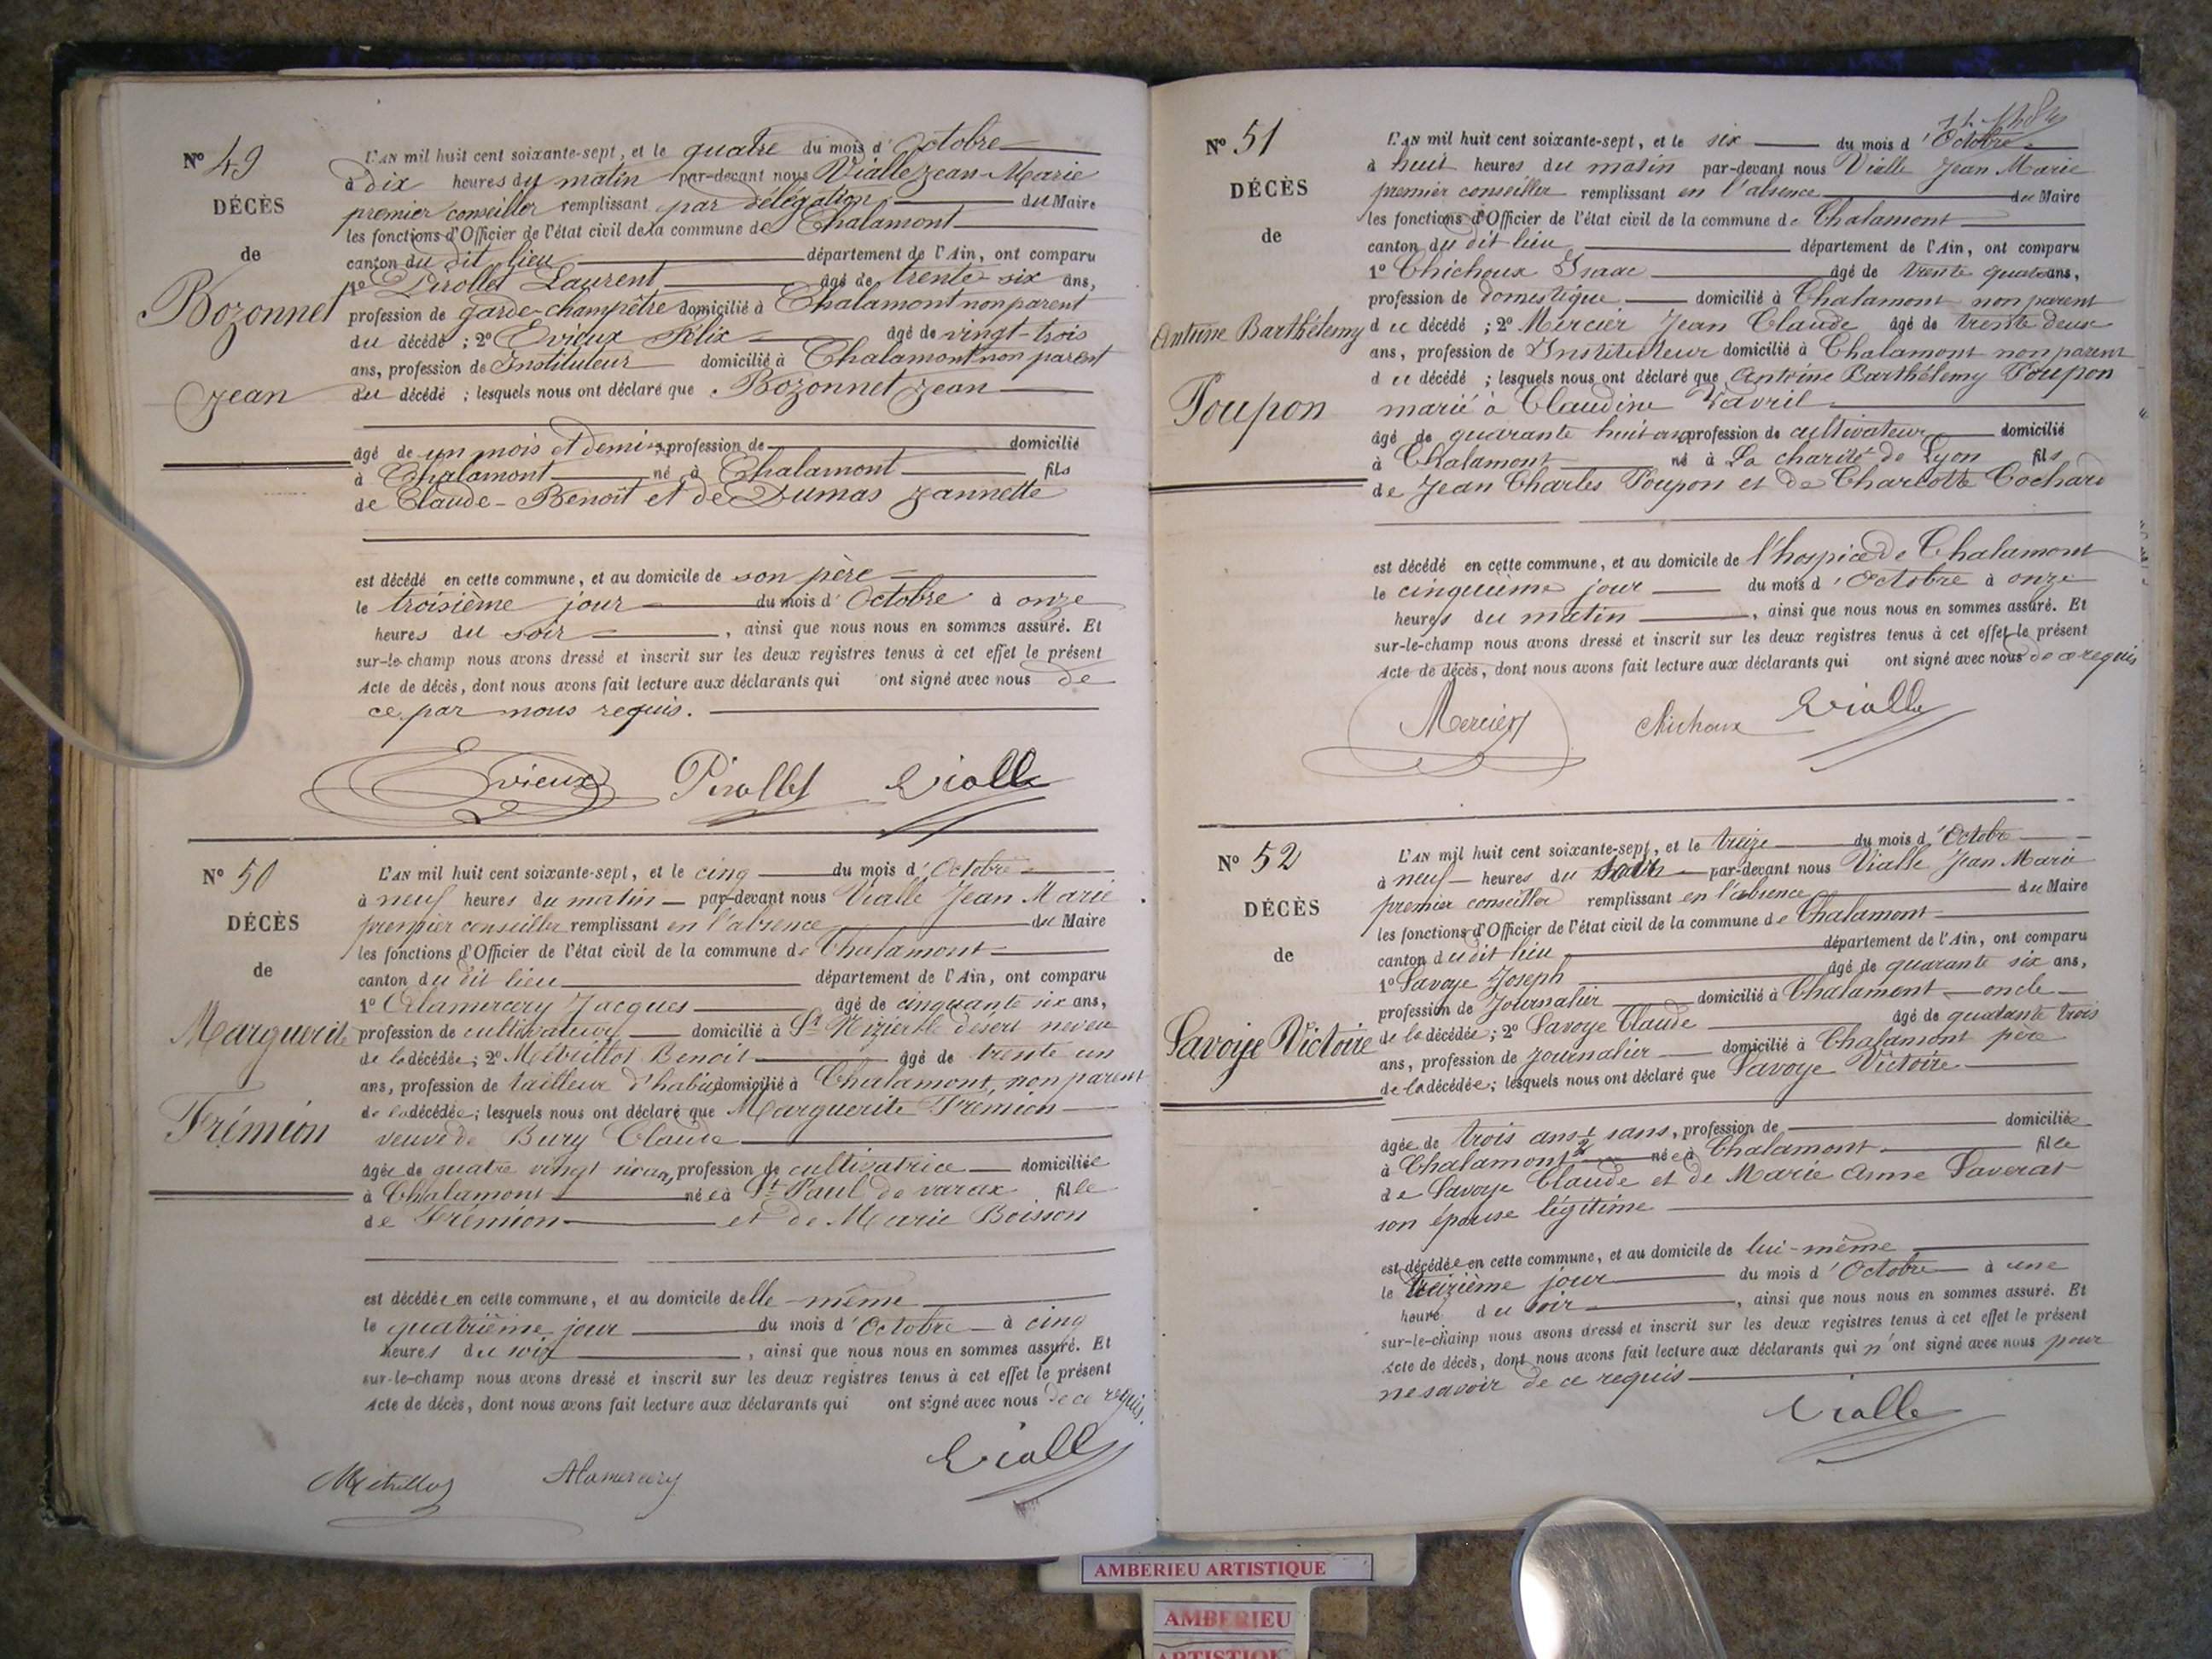 N° 49
DÉCÈS
de
Bozonnet
Jean
L'AN mil huit cent soixante-sept, et le quatre du mois d'Octobre
à dix heures du matin par-devant nous Vialle Jean-Marie
premier conseiller remplissant par délégation du Maire
les fonctions d'Officier de l'état civil de la commune de Chalamont
canton du dit lieu département de l'Ain, ont comparu
1° Pirollet Laurent âgé de trente six ans,
profession de garde-champêtre domicilié à Chalamont non parent
du décédé ; 2° Evieux Félix âgé de vingt-trois
ans, profession de Instituteur domicilié à Chalamont non parent
du décédé ; lesquels nous ont déclaré que Bozonnet Jean
âgé de un mois et demi profession de domicilié
à Chalamont né à Chalamont fils
de Claude-Benoît et de Dumas Jannette
est décédé en cette commune, et au domicile de son père
le troisième jour du mois d'Octobre à onze
heures du soir, ainsi que nous nous en sommes assuré. Et
sur-le-champ nous avons dressé et inscrit sur les deux registres tenus à cet effet le présent
Acte de décès, dont nous avons fait lecture aux déclarants qui ont signé avec nous de
ce par nous requis.
Evieux Pirollet Vialle
N° 50
DÉCÈS
de
Marguerite
Frémion
L'AN mil huit cent soixante-sept, et le cinq du mois d'Octobre
à neuf heures du matin par-devant nous Vialle Jean Marie
premier conseiller remplissant en l'absence du Maire
les fonctions d'Officier de l'état civil de la commune de Chalamont
canton du dit lieu département de l'Ain, ont comparu
1° Alamercery Jacques âgé de cinquante six ans,
profession de cultivateur domicilié à St Nizier le désert neveu
de la décédée ; 2° Métrillot Benoit âgé de trente un
ans, profession de tailleur d'habits domicilié à Chalamont, non parent
de la décédée ; lesquels nous ont déclaré que Marguerite Frémion
veuve de Bury Claude
âgée de quatre vingt ans, profession de cultivatrice domiciliée
à Chalamont née à St Paul de varax fille
de Frémion et de Marie Boisson
est décédée en cette commune, et au domicile delle-même
le quatrième jour du mois d'Octobre à cinq
heures du soir, ainsi que nous nous en sommes assuré. Et
sur-le-champ nous avons dressé et inscrit sur les deux registres tenus à cet effet le présent
Acte de décès, dont nous avons fait lecture aux déclarants qui ont signé avec nous de ce requis.
Métrillot Alamercery Vialle
N° 51
DÉCÈS
de
Antoine Barthélemy
Poupon
L'AN mil huit cent soixante-sept, et le six du mois d'Octobre
à huit heures du matin par-devant nous Vialle Jean Marie
premier conseiller remplissant en l'absence du Maire
les fonctions d'Officier de l'état civil de la commune de Chalamont
canton du dit lieu département de l'Ain, ont comparu
1° Chichoux Isaac âgé de trente quatre ans,
profession de domestique domicilié à Chalamont non parent
du décédé ; 2° Mercier Jean Claude âgé de trente deux
ans, profession de Instituteur domicilié à Chalamont non parent
du décédé ; lesquels nous ont déclaré que Antoine Barthélemy Poupon
marié à Claudine Vavril
âgé de quarante huit ans profession de cultivateur domicilié
à Chalamont né à La charité de Lyon fils
de Jean Charles Poupon et de Charlotte Cochard
est décédé en cette commune, et au domicile de l'hospice de Chalamont
le cinquième jour du mois d'Octobre à onze
heures du matin, ainsi que nous nous en sommes assuré. Et
sur-le-champ nous avons dressé et inscrit sur les deux registres tenus à cet effet le présent
Acte de décès, dont nous avons fait lecture aux déclarants qui ont signé avec nous de ce requis
Mercier Chichoux Vialle
N° 52
DÉCÈS
de
Savoye Victoire
L'AN mil huit cent soixante-sept, et le treize du mois d'Octobre
à neuf heures du soir par-devant nous Vialle Jean Marie
premier conseiller remplissant en l'absence du Maire
les fonctions d'Officier de l'état civil de la commune de Chalamont
canton du dit lieu département de l'Ain, ont comparu
1° Savoye Joseph âgé de quarante six ans,
profession de Journalier domicilié à Chalamont oncle
de la décédée ; 2° Savoye Claude âgé de quarante trois
ans, profession de journalier domicilié à Chalamont père
de la décédée ; lesquels nous ont déclaré que Savoye Victoire
âgée de trois ans 1/2 sans, profession de domiciliée
à Chalamont née à Chalamont fille
de Savoye Claude et de Marie Anne Saverat
son épouse légitime
est décédée en cette commune, et au domicile de lui-même
le treizième jour du mois d'Octobre à une
heure du soir, ainsi que nous nous en sommes assuré. Et
sur-le-champ nous avons dressé et inscrit sur les deux registres tenus à cet effet le présent
Acte de décès, dont nous avons fait lecture aux déclarants qui n'ont signé avec nous pour
ne savoir de ce requis
Vialle
AMBERIEU ARTISTIQUE
AMBERIEU
ARTISTIQUE